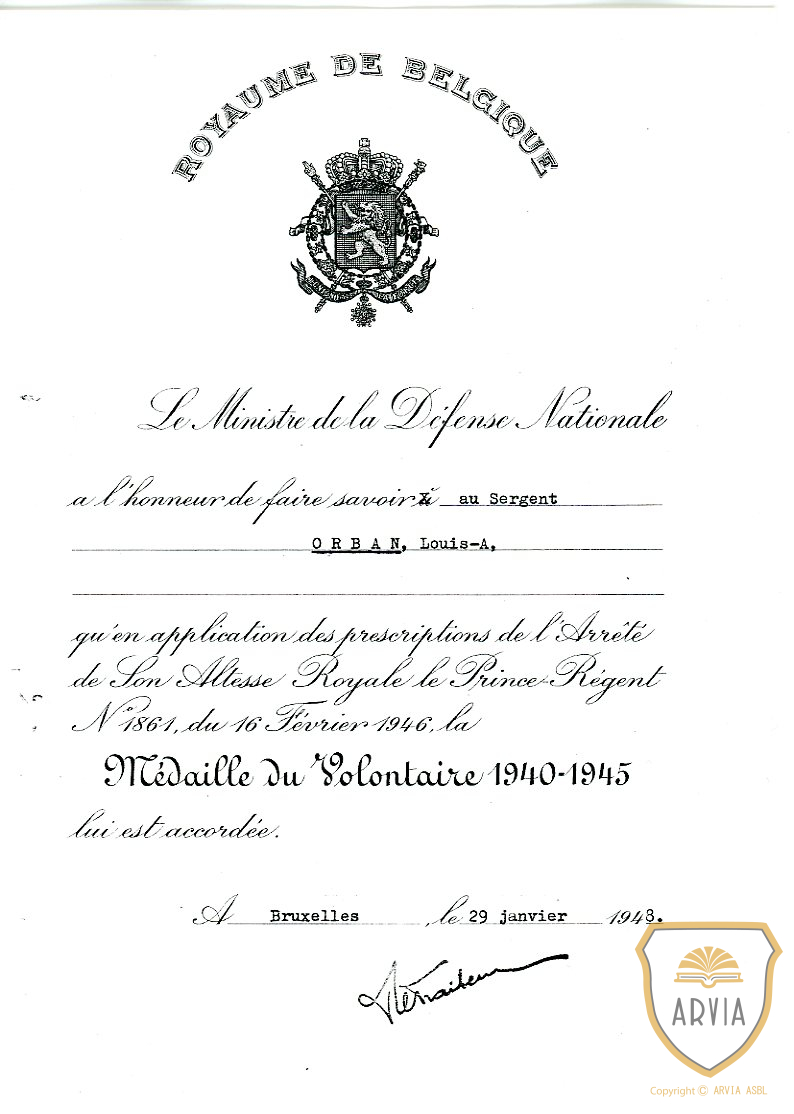 ROYAUME DE BELGIQUE
Le Ministre de la Défense Nationale
a l'honneur de faire savoir à au Sergent
O R B A N, Louis-A,
qu'en application des prescriptions de l'Arrêté
de Son Altesse Royale le Prince-Régent
N° 1861, du 16 Février 1946, la
Médaille du Volontaire 1940-1945
lui est accordée.
A Bruxelles, le 29 janvier 1948.
ARVIA
Copyright © ARVIA ASBL